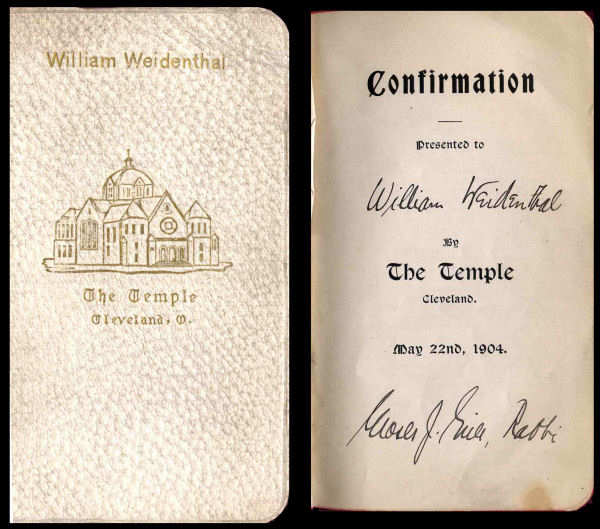 William Weidenthal
The Temple
Cleveland, O.
Confirmation
Presented to
William Weidenthal
By
The Temple
Cleveland.
May 22nd, 1904.
Moses J. Gries, Rabbi